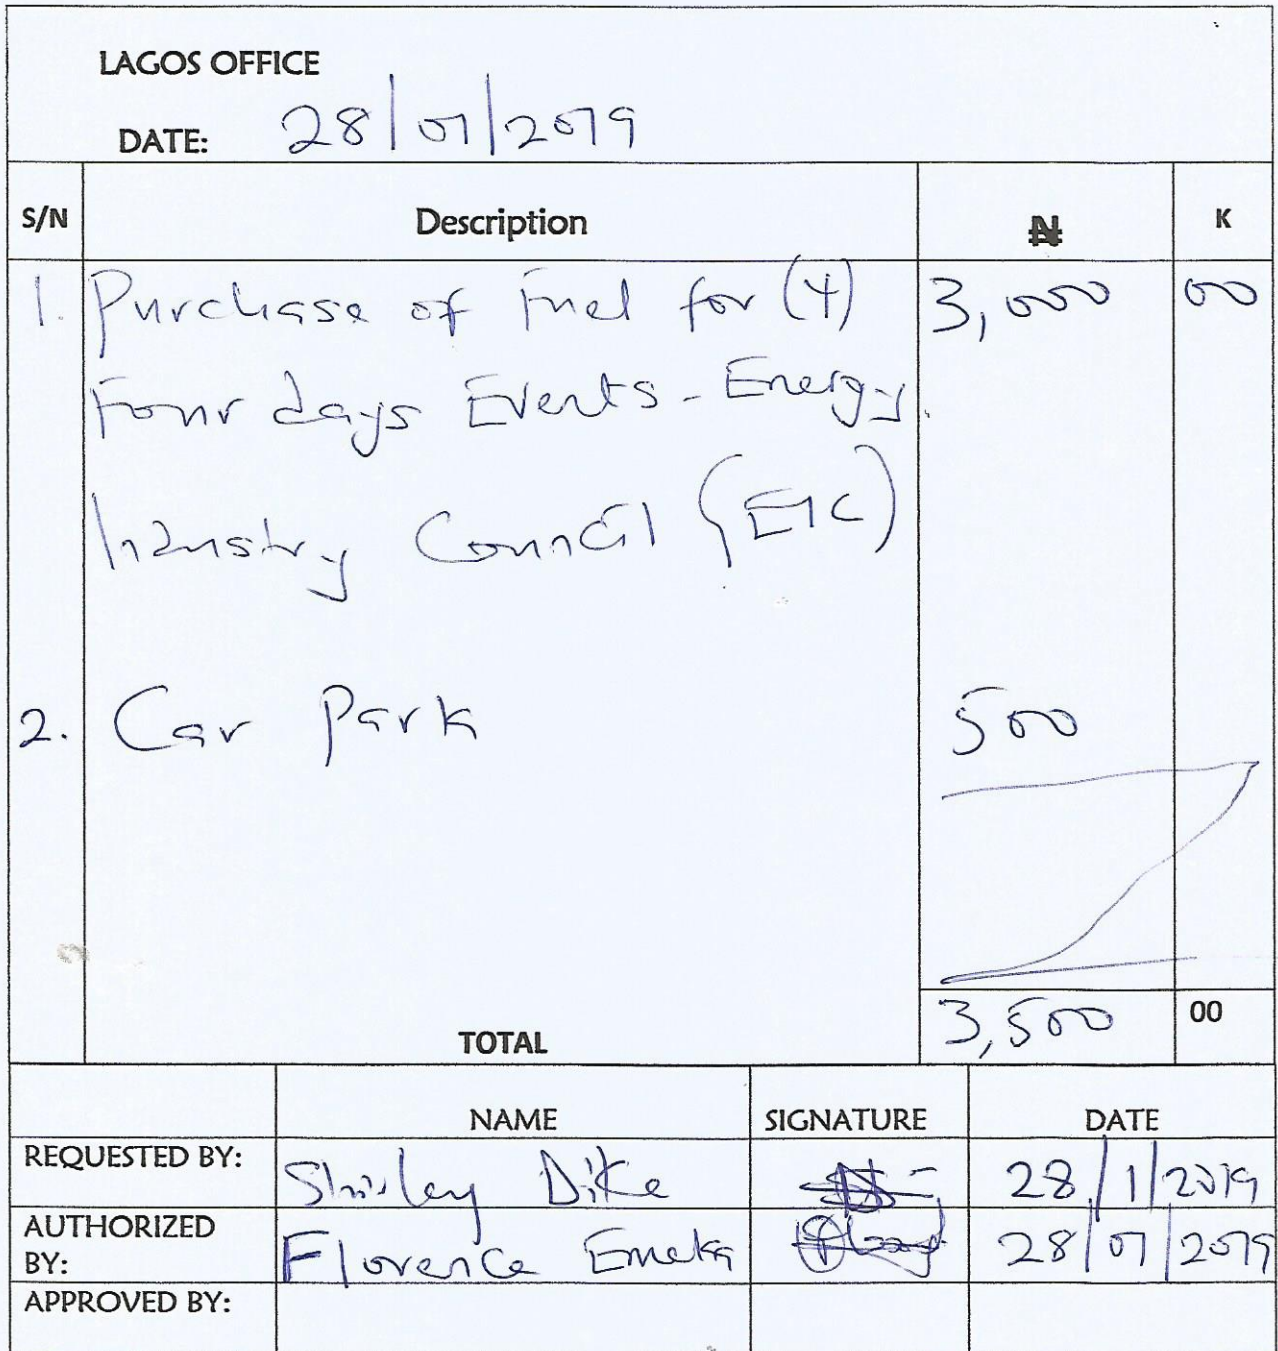 LAGOS OFFICE
DATE: 28/01/2019
S/N Description ₦ K
1. Purchase of Fuel for (4) 3,000 00
Four days Events - Energy
Industry Council (EIC)
2. Car Park 500
TOTAL 3,500 00
NAME SIGNATURE DATE
REQUESTED BY: Shirley Dike 28/1/2019
AUTHORIZED
BY: Florence Emeka 28/01/2019
APPROVED BY: